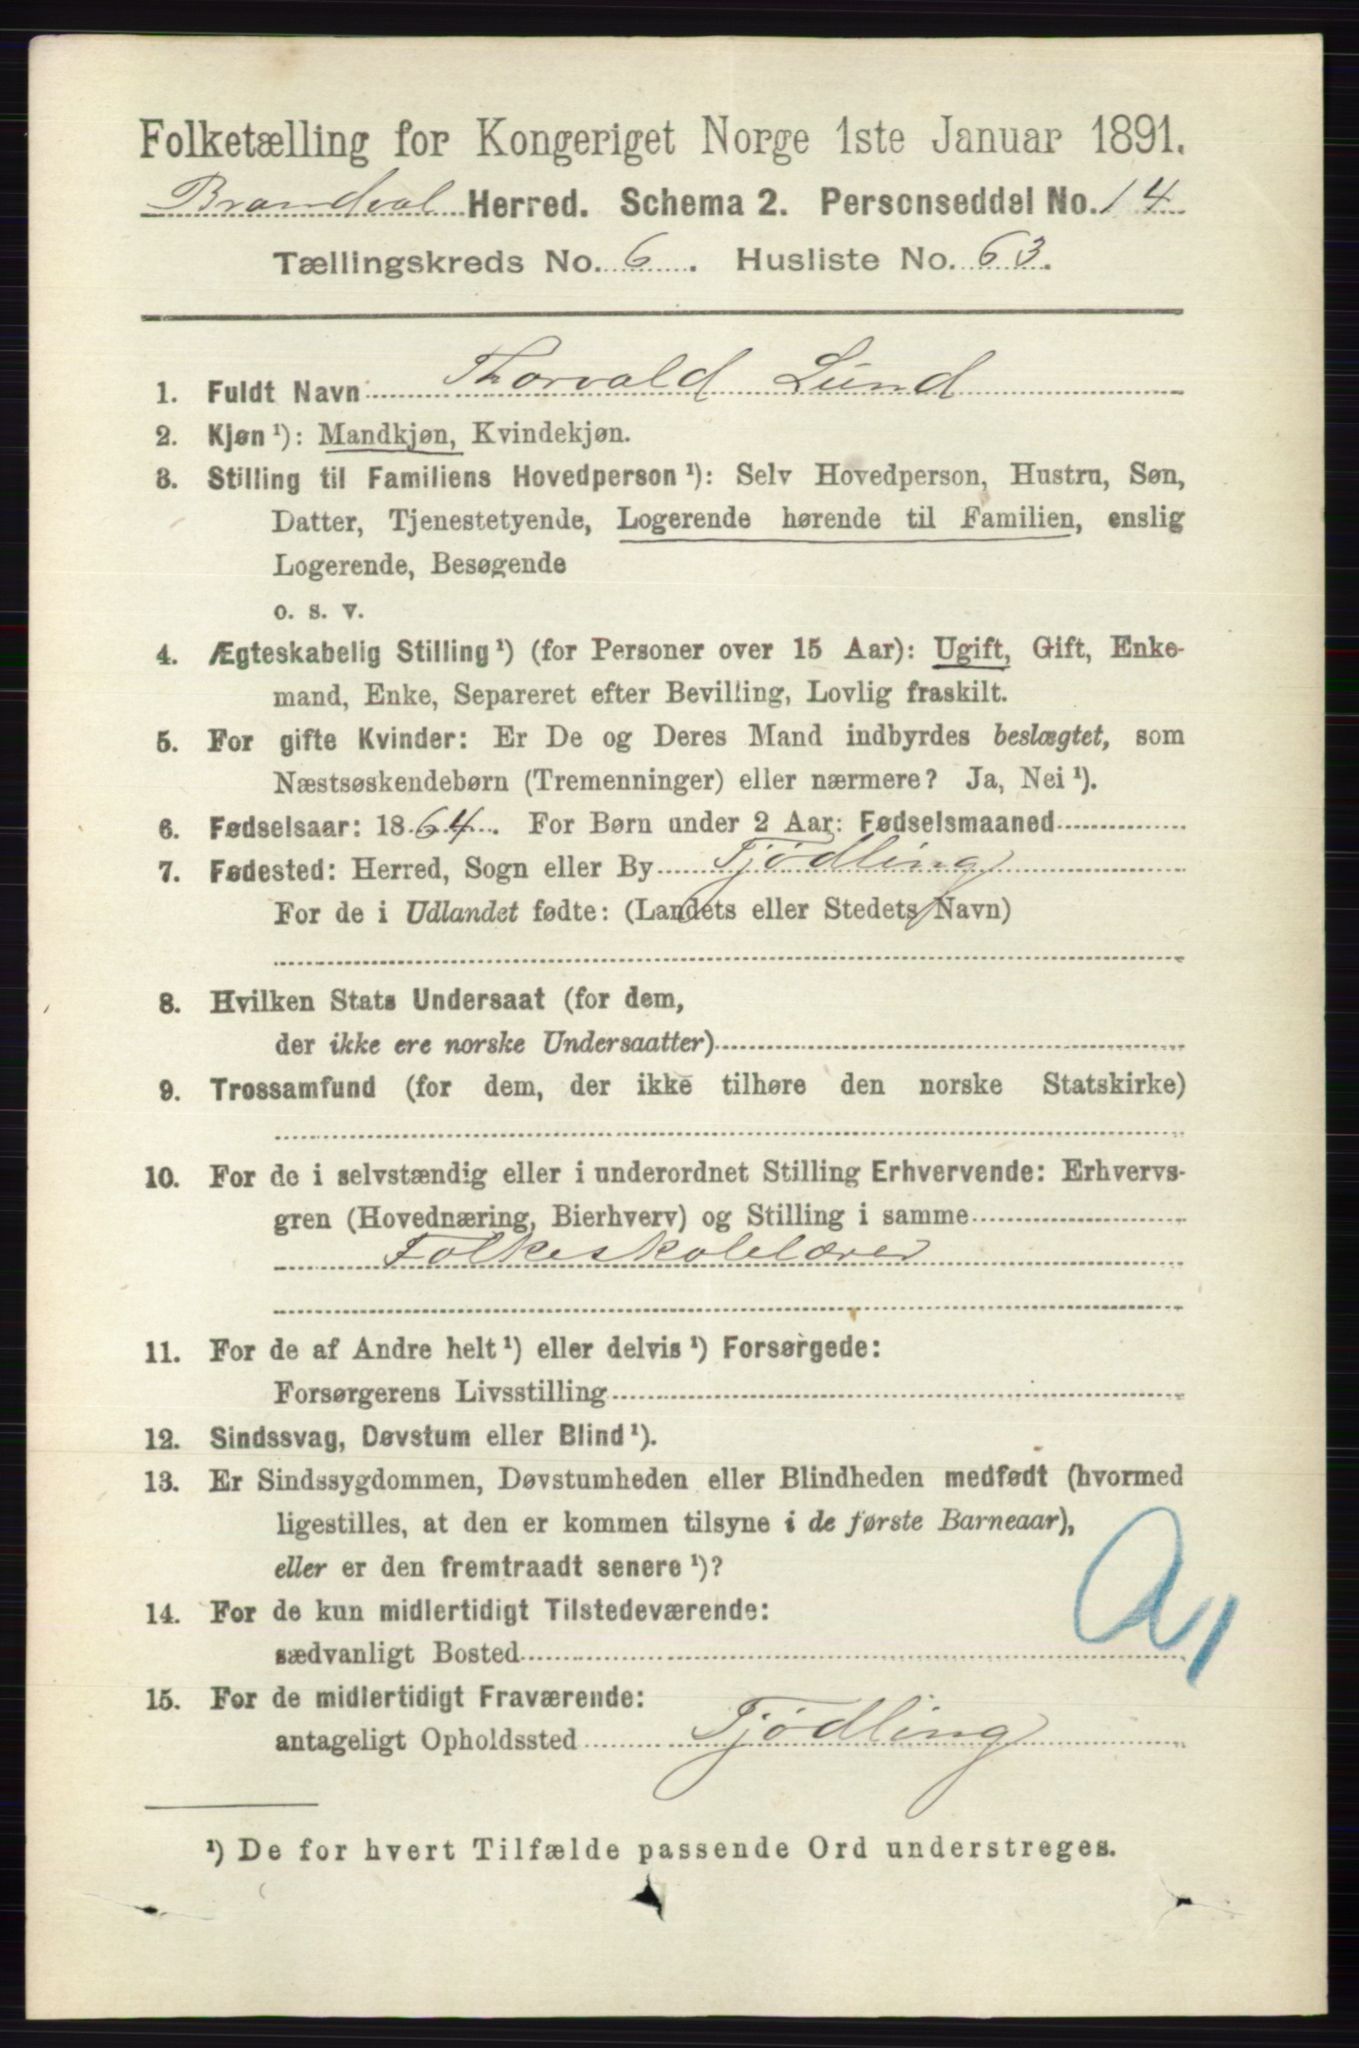 Folketælling for Kongeriget Norge 1ste Januar 1891.
Brandval Herred. Schema 2. Personseddel No. 14
Tællingskreds No. 6. Husliste No. 63.
1. Fuldt Navn Thorvald Lund
2. Kjøn ¹): Mandkjøn, Kvindekjøn.
3. Stilling til Familiens Hovedperson ¹): Selv Hovedperson, Hustru, Søn,
Datter, Tjenestetyende, Logerende hørende til Familien, enslig
Logerende, Besøgende
o. s. v.
4. Ægteskabelig Stilling ¹) (for Personer over 15 Aar): Ugift, Gift, Enke-
mand, Enke, Separeret efter Bevilling, Lovlig fraskilt.
5. For gifte Kvinder: Er De og Deres Mand indbyrdes beslægtet, som
Næstsøskendebørn (Tremenninger) eller nærmere? Ja, Nei ¹).
6. Fødselsaar: 1864. For Børn under 2 Aar: Fødselsmaaned
7. Fødested: Herred, Sogn eller By Tjödling
For de i Udlandet fødte: (Landets eller Stedets Navn)
8. Hvilken Stats Undersaat (for dem,
der ikke ere norske Undersaatter)
9. Trossamfund (for dem, der ikke tilhøre den norske Statskirke)
10. For de i selvstændig eller i underordnet Stilling Erhvervende: Erhvervs-
gren (Hovednæring, Bierhverv) og Stilling i samme
Folkeskolelærer
11. For de af Andre helt ¹) eller delvis ¹) Forsørgede:
Forsørgerens Livsstilling
12. Sindssvag, Døvstum eller Blind ¹).
13. Er Sindssygdommen, Døvstumheden eller Blindheden medfødt (hvormed
ligestilles, at den er kommen tilsyne i de første Barneaar),
eller er den fremtraadt senere ¹)?
14. For de kun midlertidigt Tilstedeværende:
sædvanligt Bosted
15. For de midlertidigt Fraværende:
antageligt Opholdssted Tjödling
¹) De for hvert Tilfælde passende Ord understreges.